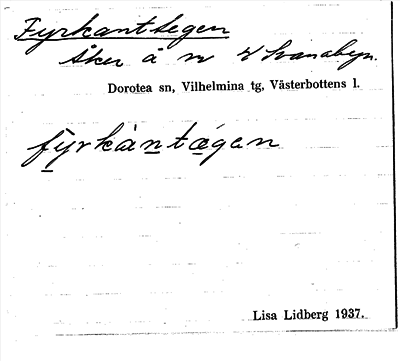 Fyrkanttegen
Åker å n 4 Svanabyn.
Dorotea sn, Vilhelmina tg, Västerbottens l.
fỳrkàntǽgen
Lisa Lidberg 1937.